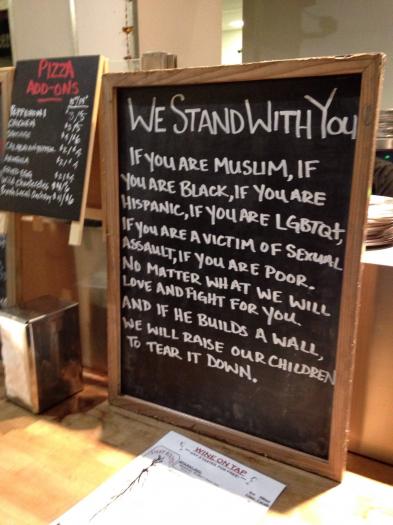 PIZZA
ADD-ONS
PEPPERONI
CHICKEN
SAUSAGE
ARUGULA
FRIED EGG
WE STAND WITH YOU
IF YOU ARE MUSLIM, IF
YOU ARE BLACK, IF YOU ARE
HISPANIC, IF YOU ARE LGBTQ+,
IF YOU ARE A VICTIM OF SEXUAL
ASSAULT, IF YOU ARE POOR.
NO MATTER WHAT WE WILL
LOVE AND FIGHT FOR YOU.
AND IF HE BUILDS A WALL,
WE WILL RAISE OUR CHILDREN
TO TEAR IT DOWN.
WINE ON TAP